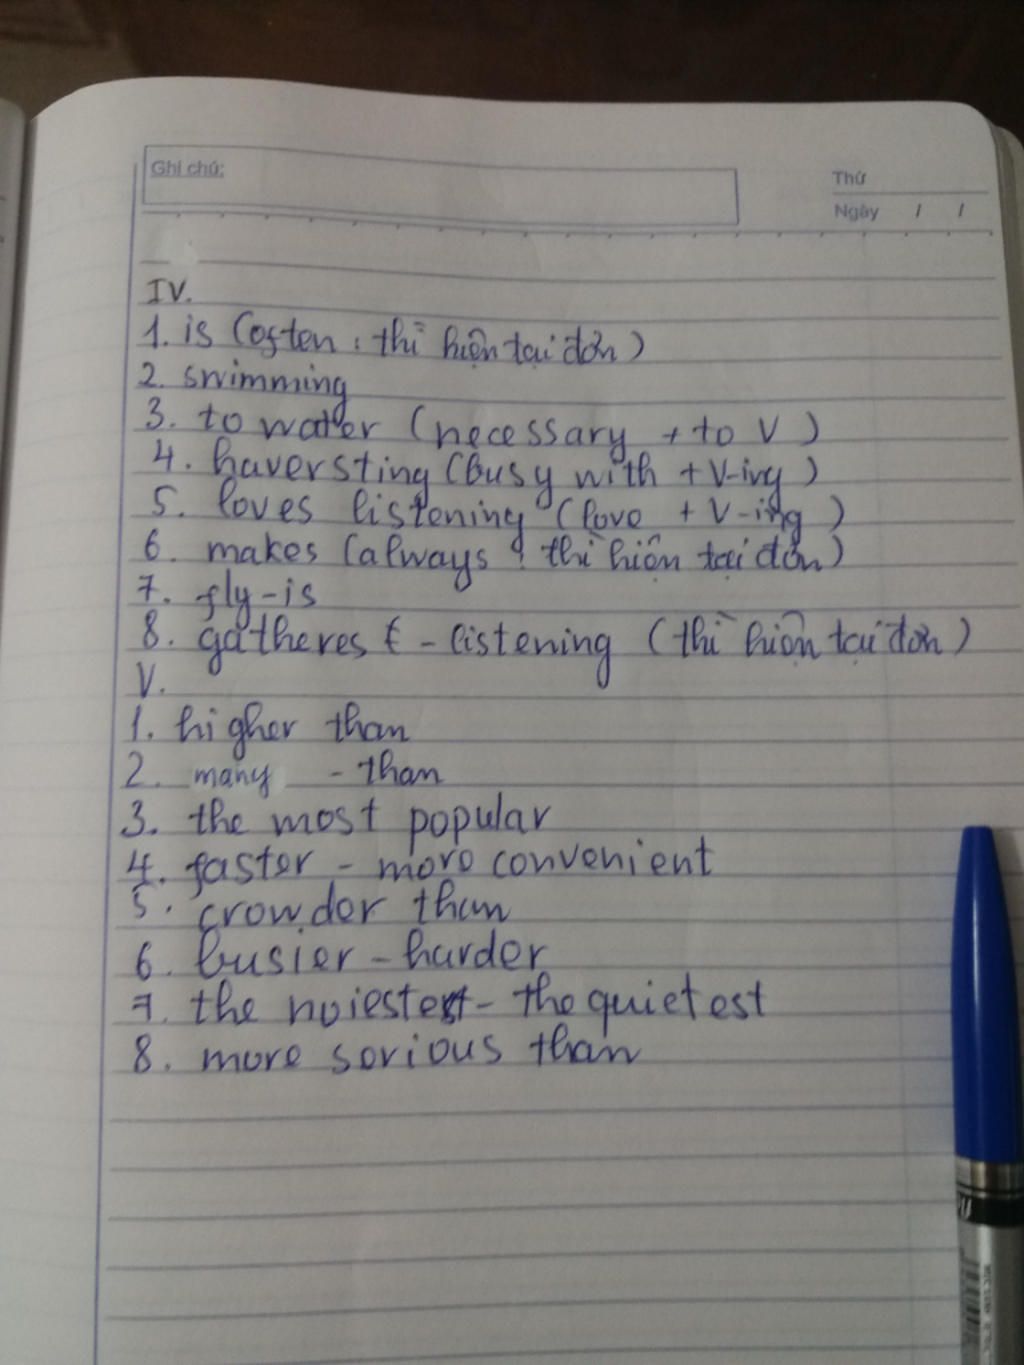 Ghi chú:
Thứ
Ngày / /
IV.
1. is (often : thì hiện tại đơn)
2. swimming
3. to water (necessary + to V)
4. haversting (busy with + V-ing)
5. loves listening (love + V-ing)
6. makes (always : thì hiện tại đơn)
7. fly-is
8. gatheres - listening (thì hiện tại đơn)
V.
1. higher than
2. many - than
3. the most popular
4. faster - more convenient
5. crowder than
6. busier - harder
7. the noiestest - the quietest
8. more serious than